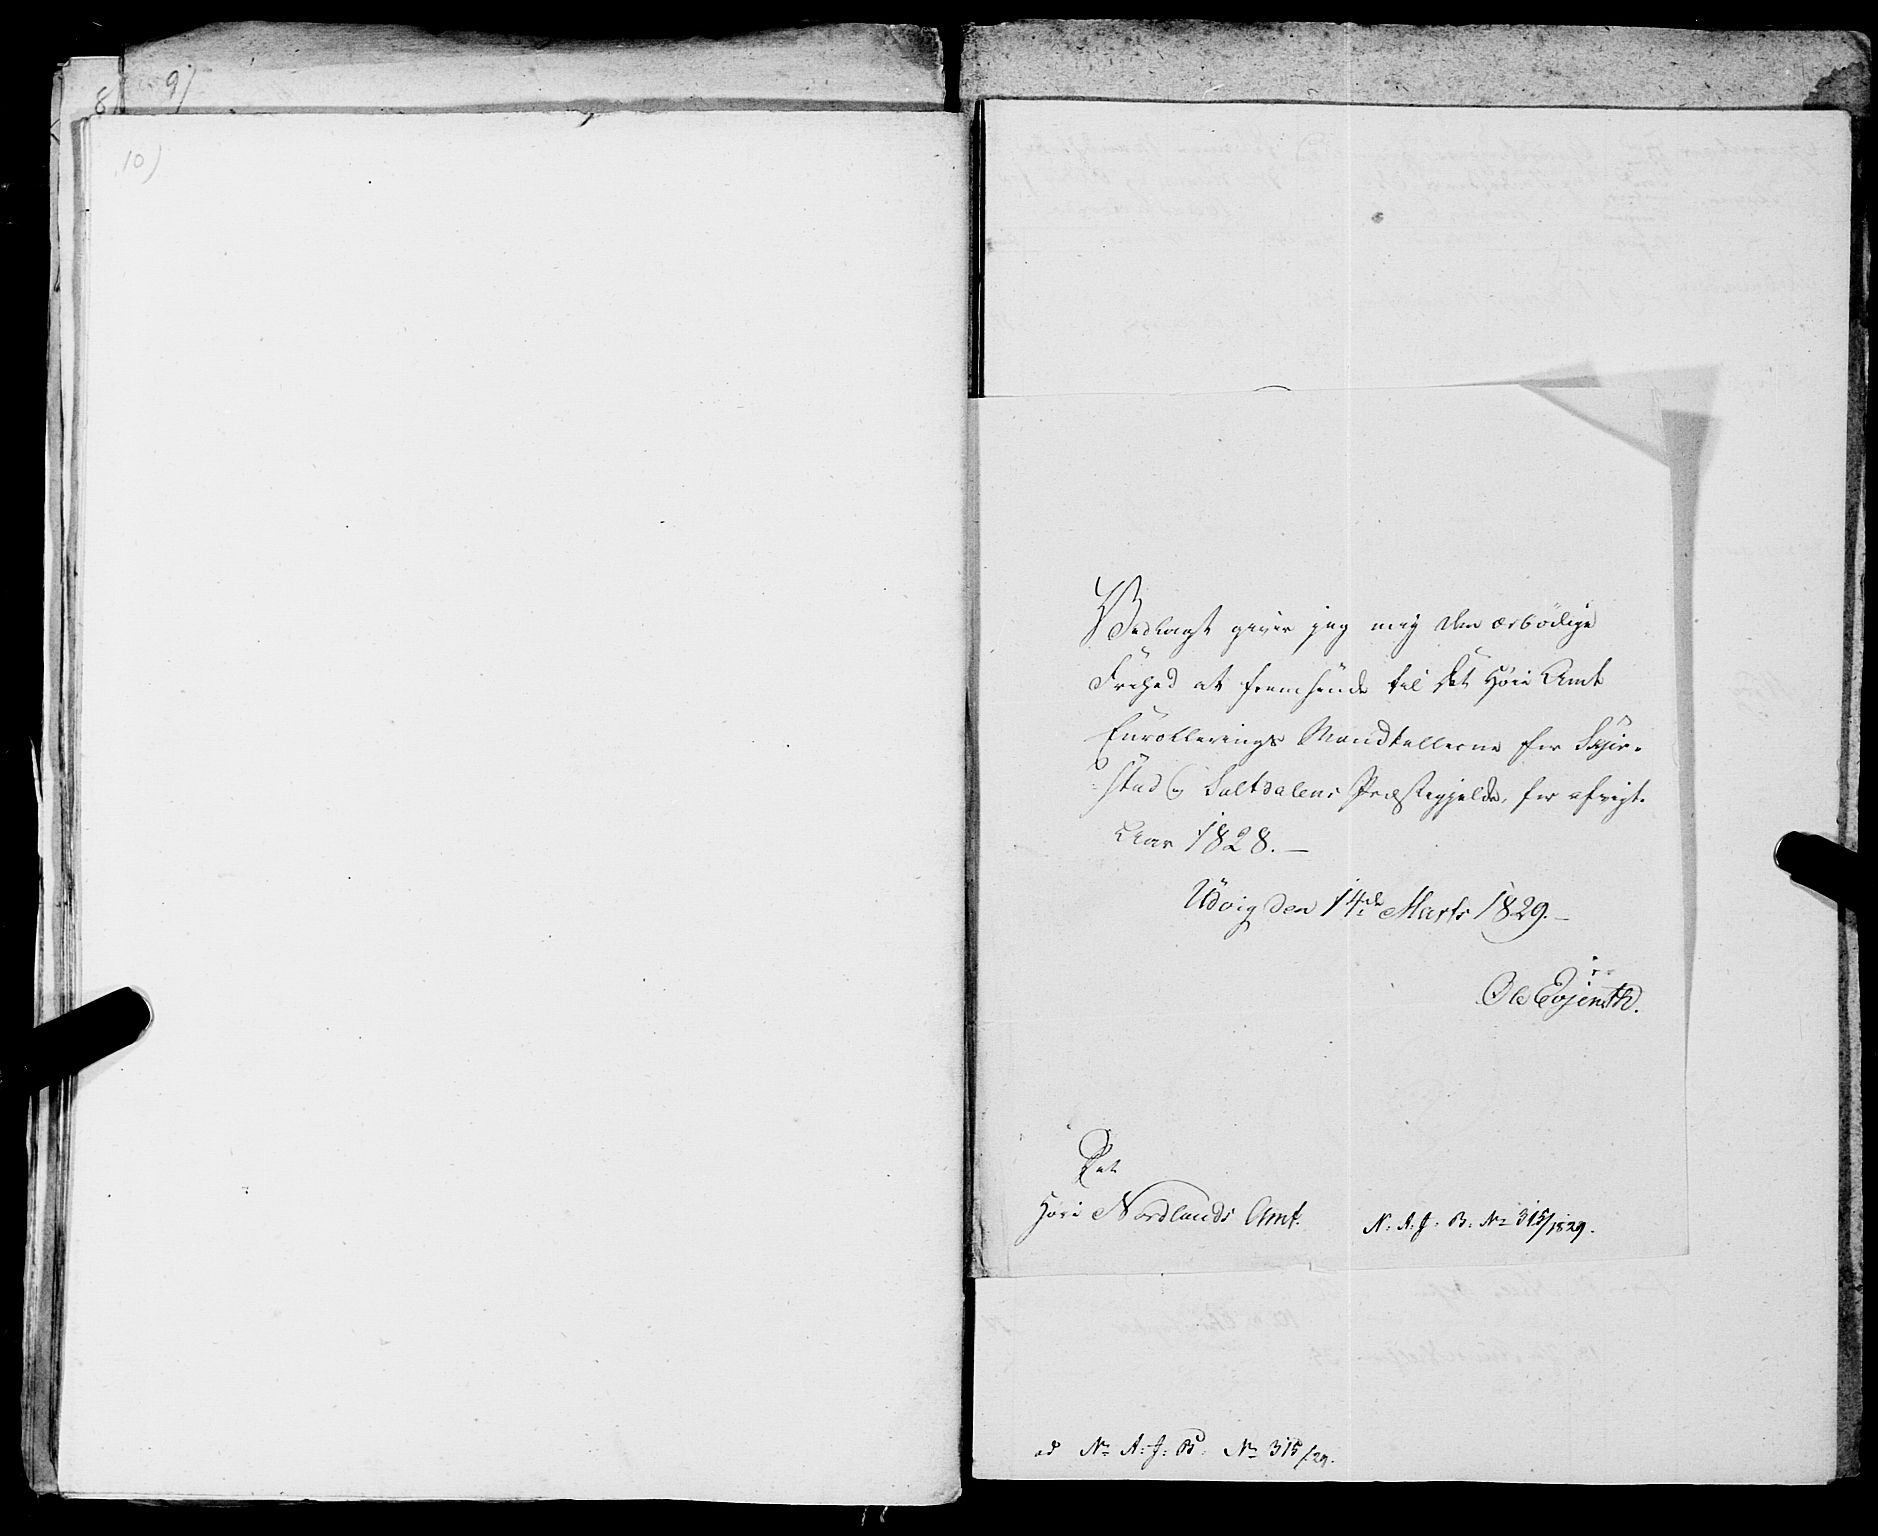 8)
9)
10)
Vedlagt giver jeg mig den ærbödige
Frihed at fremsende til Det Høie Amt
Enrollerings Mandtallerne for Skjer-
stad og Saltdalens Præstegjelde, for afvigt.
Aar 1828. —
Udvig den 14de Marts 1829. —
Ole Evjenth.
Det
Høie Nordlands Amt.
N: A: J: B: No 315/1829.
ad No A: J: B: No 315/29.